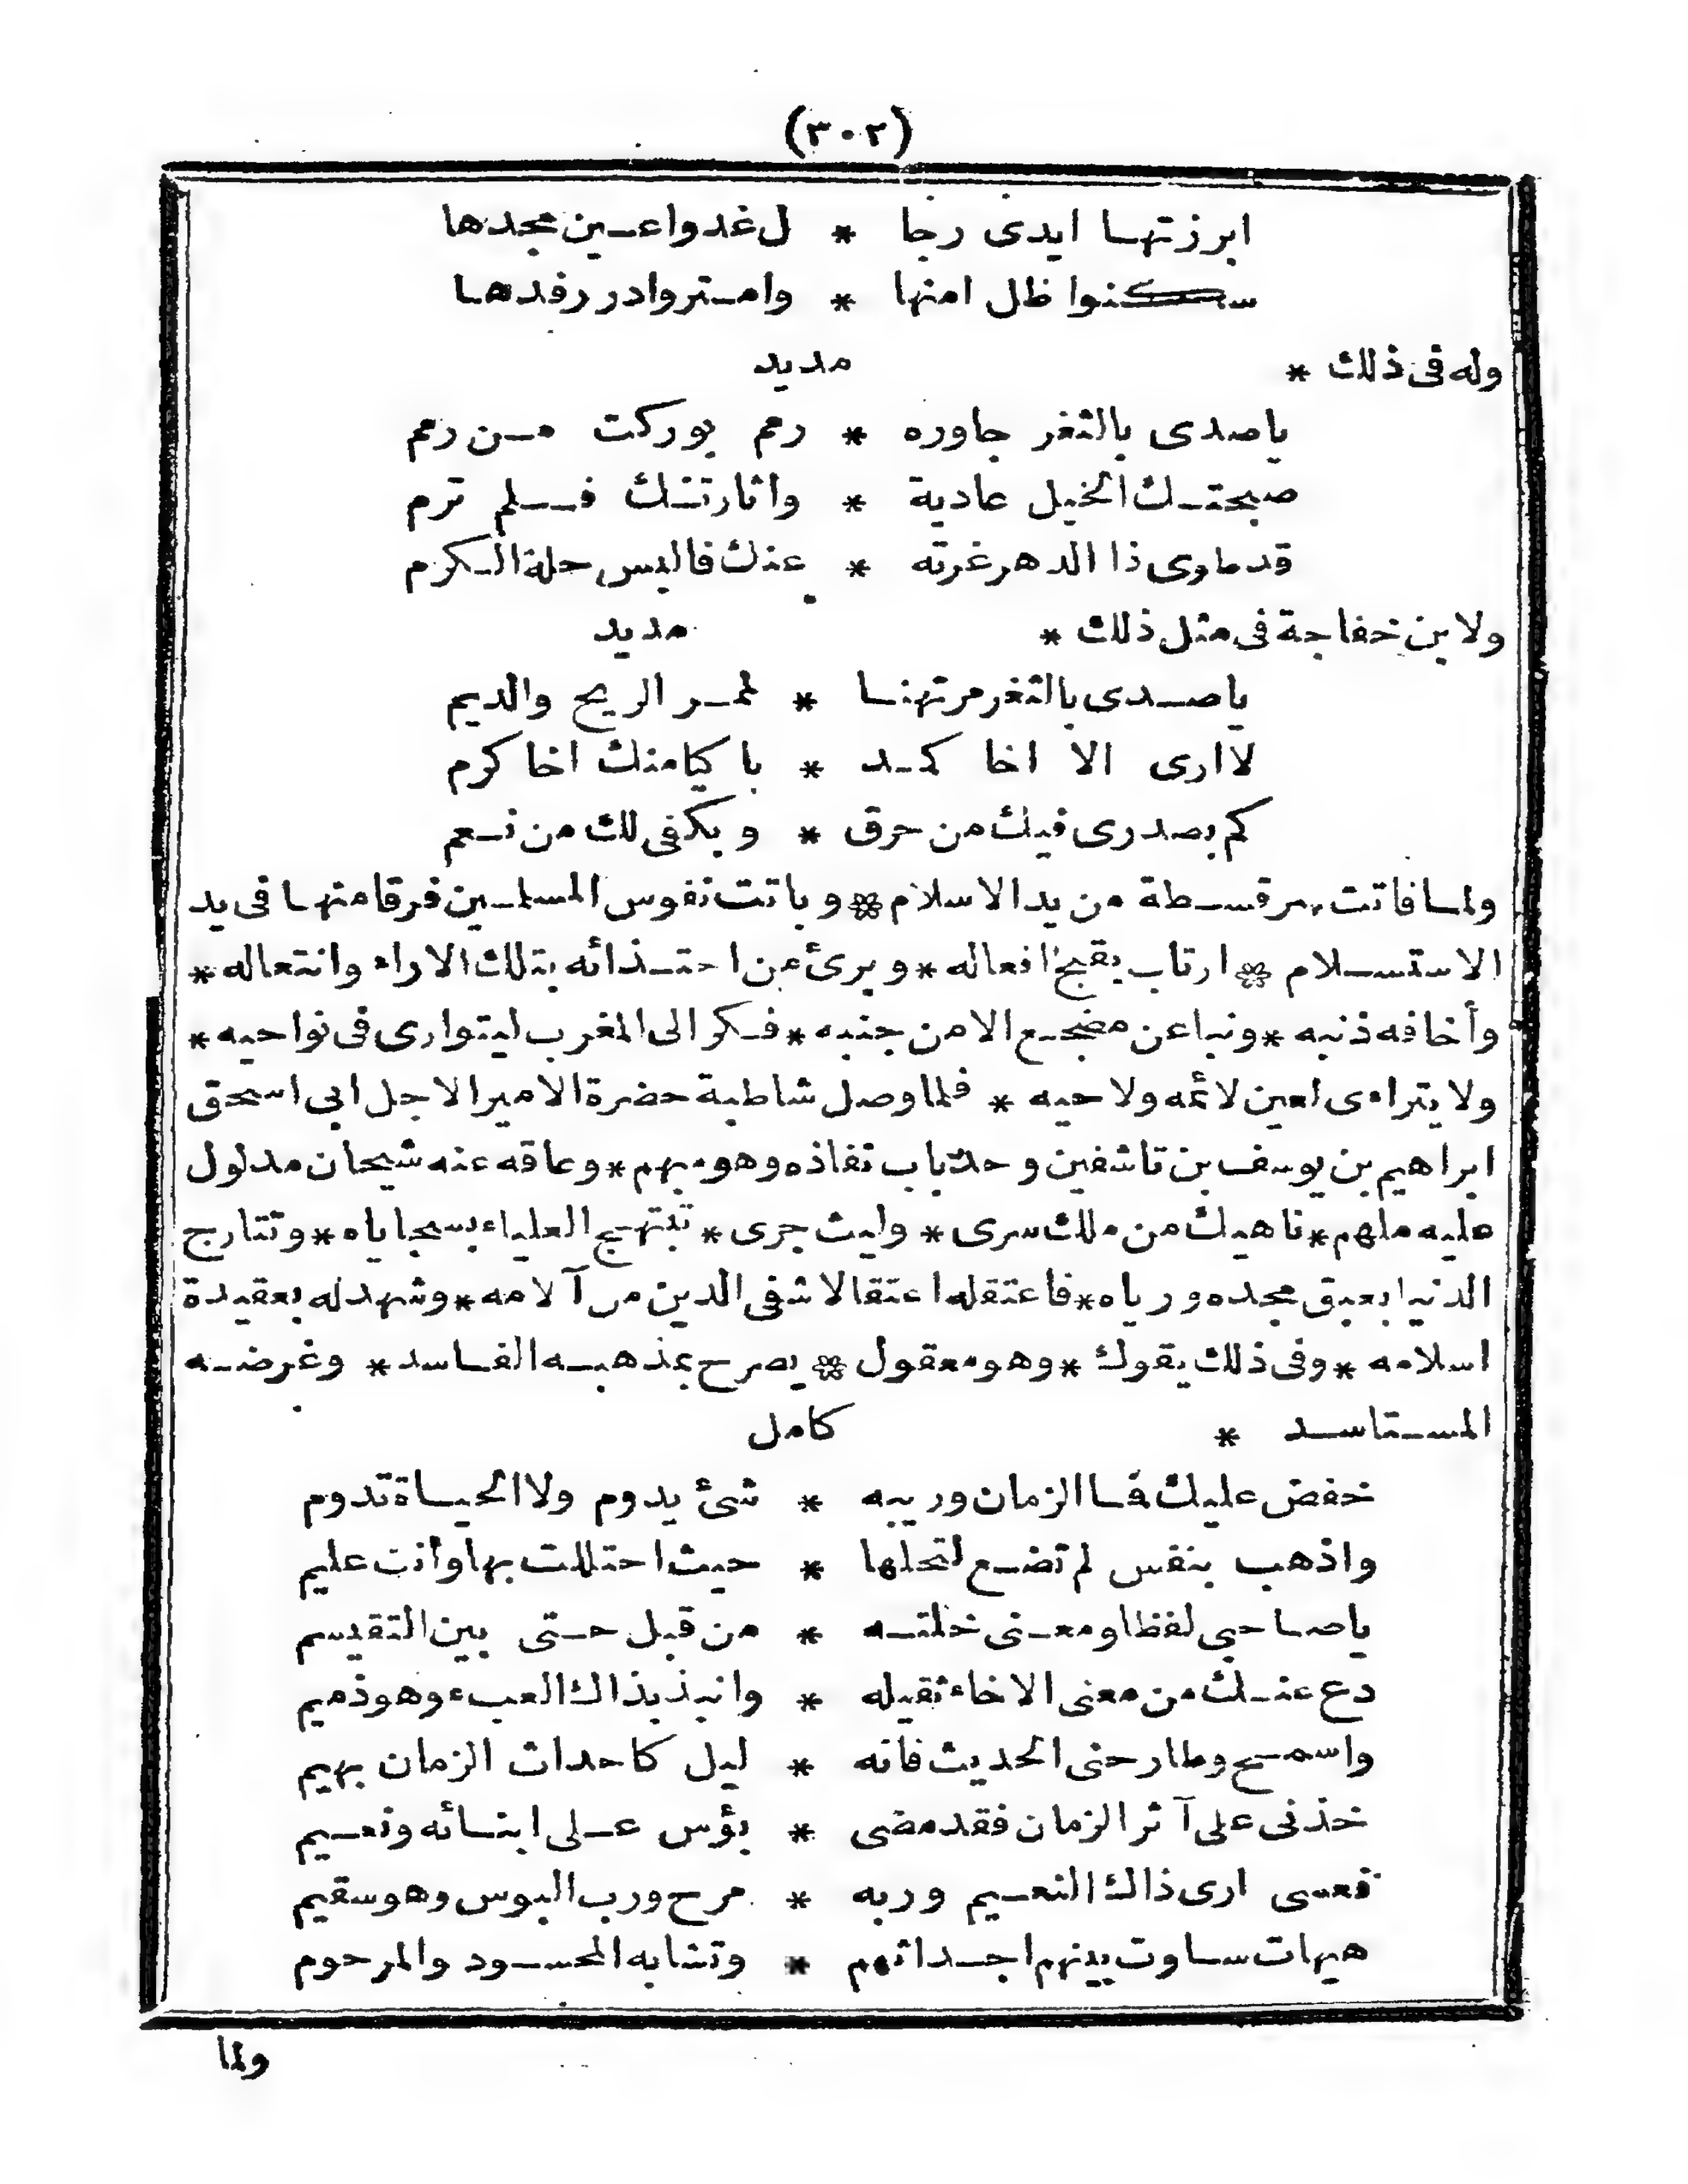 (٣٠٢)
ابرزتها ايدى رجا * ل غدوا عين مجدها
سكنوا ظل امنها * وامتروا در رفدها
وله فى ذلك * مديد
يا صدى بالثغر جاوره * رمم بوركت من رمم
صبحتك الخيل عادية * واثارتك فلم ترم
قد طوى ذا الدهر غرته * عنك فالبس حلة الكرم
ولابن خفاجة فى مثل ذلك * مديد
يا صدى بالثغر مرتهنا * لممر الريح والديم
لا ارى الا اخا كمد * باكيا منك اخا كرم
كم بصدرى فيك من حرق * وبكفى لك من نعم
ولما فاتت سرقسطة من يد الاسلام * وباتت نفوس المسلمين فرقا منها فى يد
الاستسلام * ارتاب بقبح افعاله * وبرئ من احتذائه بتلك الاراء وانتعاله *
وأخافه ذنبه * ونبا عن مضجع الامن جنبه * فكر الى المغرب ليتوارى فى نواحيه *
ولا يتراءى لعين لائمه ولاحيه * فلما وصل شاطبة حضرة الامير الاجل ابى اسحق
ابراهيم بن يوسف بن تاشفين وجد باب نفاذه وهو مبهم * وعاقه عنه شيحان مدلول
عليه ملهم * ناهيك من ملك سرى * وليث جرى * تبتهج العلياء بسجاياه * وتتارج
الدنيا بعبق مجده ورياه * فاعتقله اعتقالا شفى الدين من آلامه * وشهد له بعقيدة
اسلامه * وفى ذلك يقول * وهو معقول * يصرح بمذهبه الفاسد * وغرضه
المستاسد * كامل
خفض عليك فما الزمان وريبه * شئ يدوم ولا الحياة تدوم
واذهب بنفس لم تضع لتحلها * حيث احتللت بها وأنت عليم
يا صاحبى لفظا ومعنى خلته * من قبل حتى بين التقيسم
دع عنك من معنى الاخاء ثقيله * وانبذ بذاك العبء وهو ذميم
واسمح وطارحنى الحديث فانه * ليل كاحداث الزمان بهيم
خذنى على آثر الزمان فقد مضى * بؤس على ابنائه ونعيم
فعسى ارى ذاك النعيم وربه * مرح ورب البوس وهو سقيم
هيهات ساوت بينهم اجداثهم * وتشابه المحسود والمرحوم
ولما